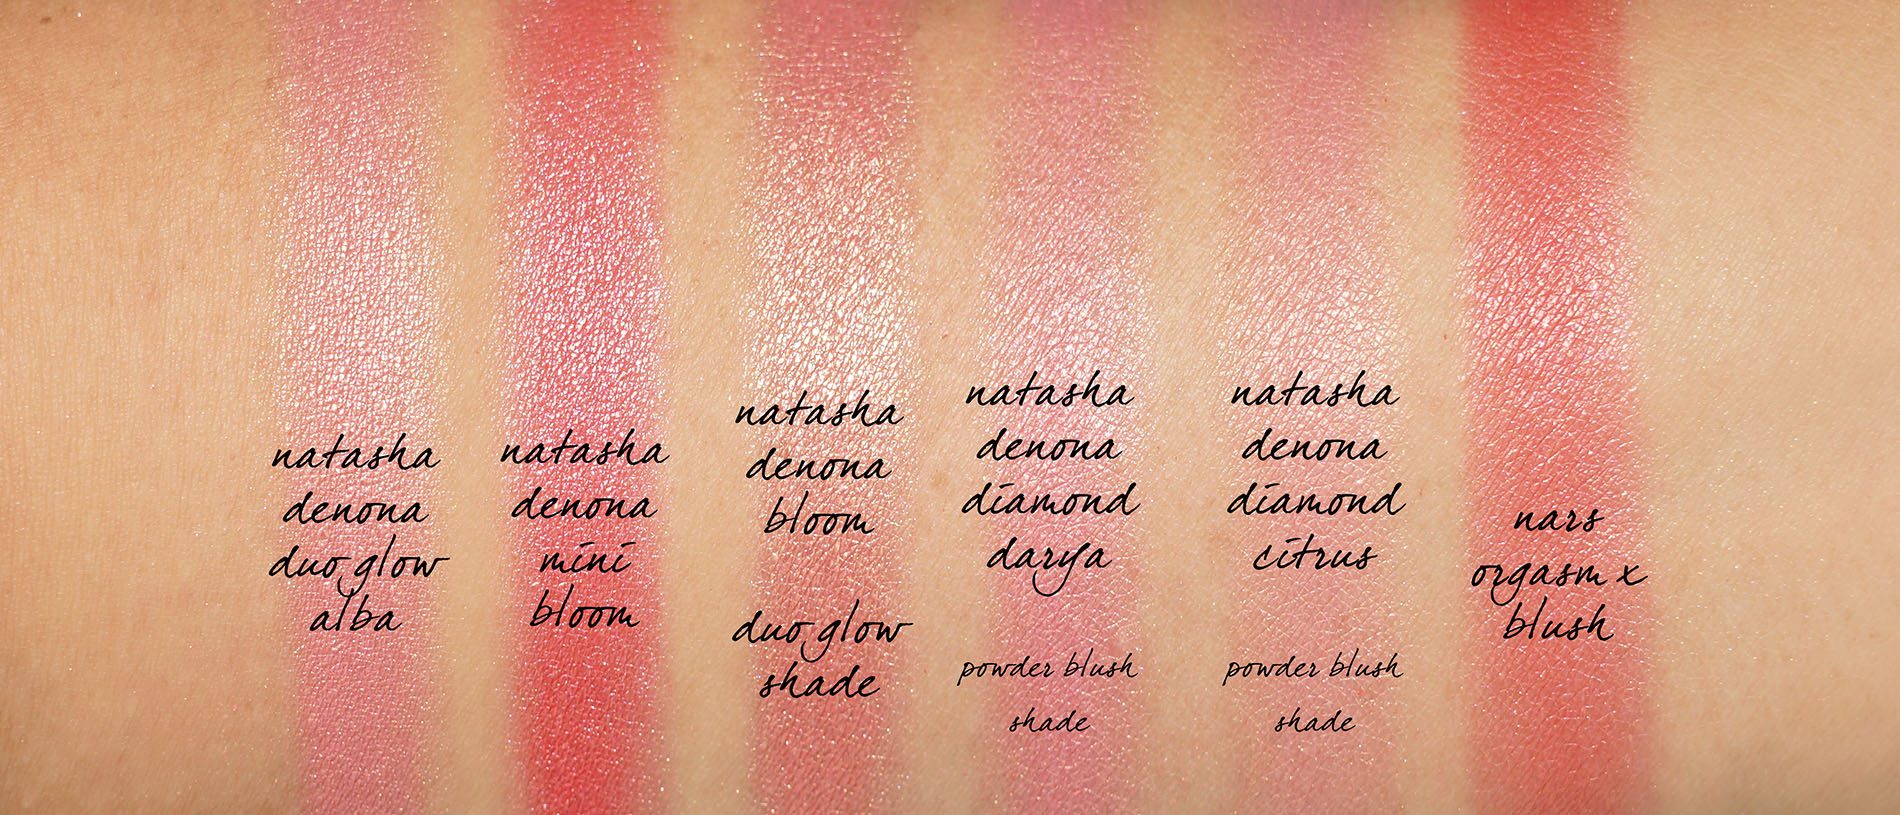 natasha
denona
duo glow
alba
natasha
denona
mini
bloom
natasha
denona
bloom
duo glow
shade
natasha
denona
diamond
darya
powder blush
shade
natasha
denona
diamond
citrus
powder blush
shade
nars
orgasm x
blush